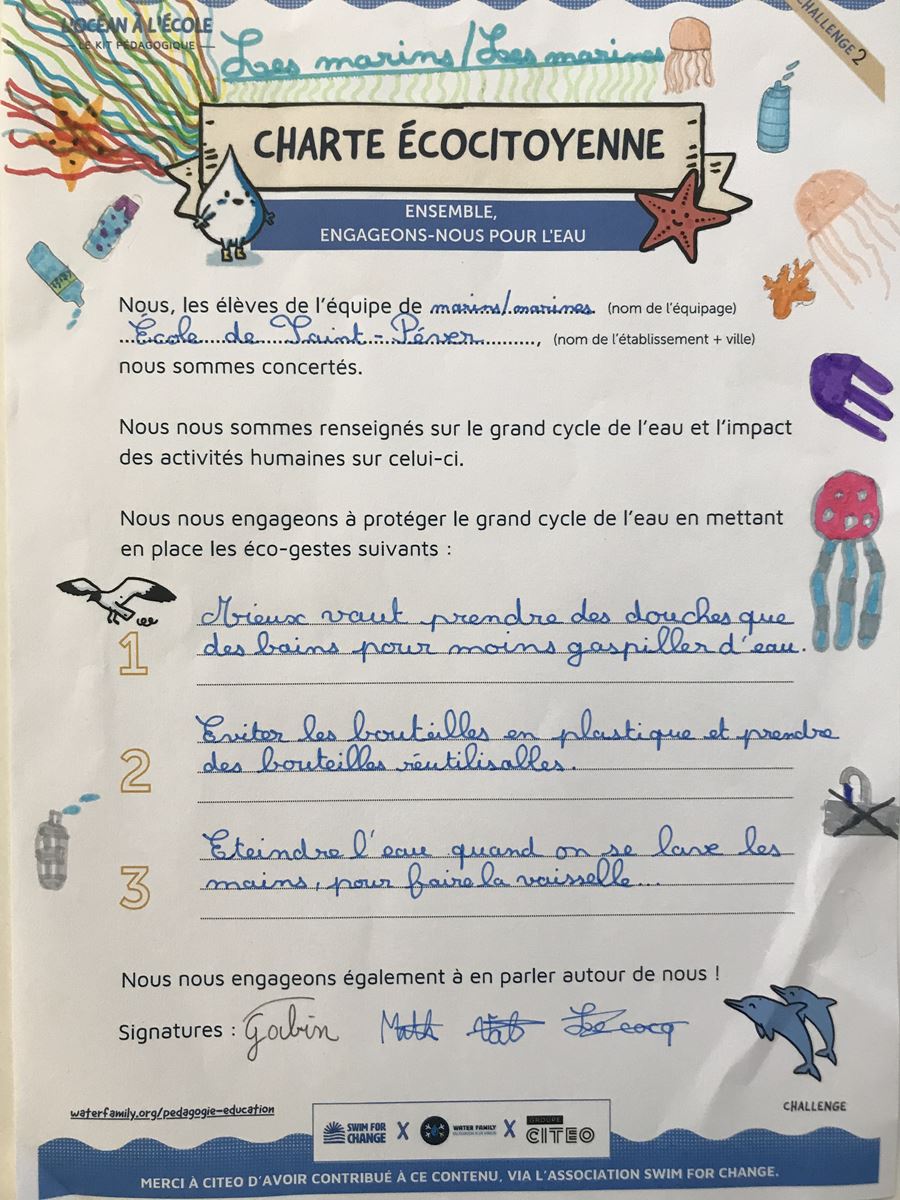 L'OCÉAN À L'ÉCOLE
LE KIT PÉDAGOGIQUE
CHALLENGE 2
Les marins/Les marines
CHARTE ÉCOCITOYENNE
ENSEMBLE,
ENGAGEONS-NOUS POUR L'EAU
Nous, les élèves de l'équipe de marins/marines. (nom de l'équipage)
École de Saint-Péver, (nom de l'établissement + ville)
nous sommes concertés.
Nous nous sommes renseignés sur le grand cycle de l'eau et l'impact
des activités humaines sur celui-ci.
Nous nous engageons à protéger le grand cycle de l'eau en mettant
en place les éco-gestes suivants :
1 Mieux vaut prendre des douches que
des bains pour moins gaspiller d'eau.
2 Eviter les bouteilles en plastique et prendre
des bouteilles réutilisables.
3 Eteindre l'eau quand on se lave les
mains, pour faire la vaisselle...
Nous nous engageons également à en parler autour de nous !
Signatures : Gabin Lecocq
waterfamily.org/pedagogie-education
CHALLENGE
SWIM FOR
CHANGE X WATER FAMILY X GROUPE
CITEO
MERCI À CITEO D'AVOIR CONTRIBUÉ À CE CONTENU, VIA L'ASSOCIATION SWIM FOR CHANGE.